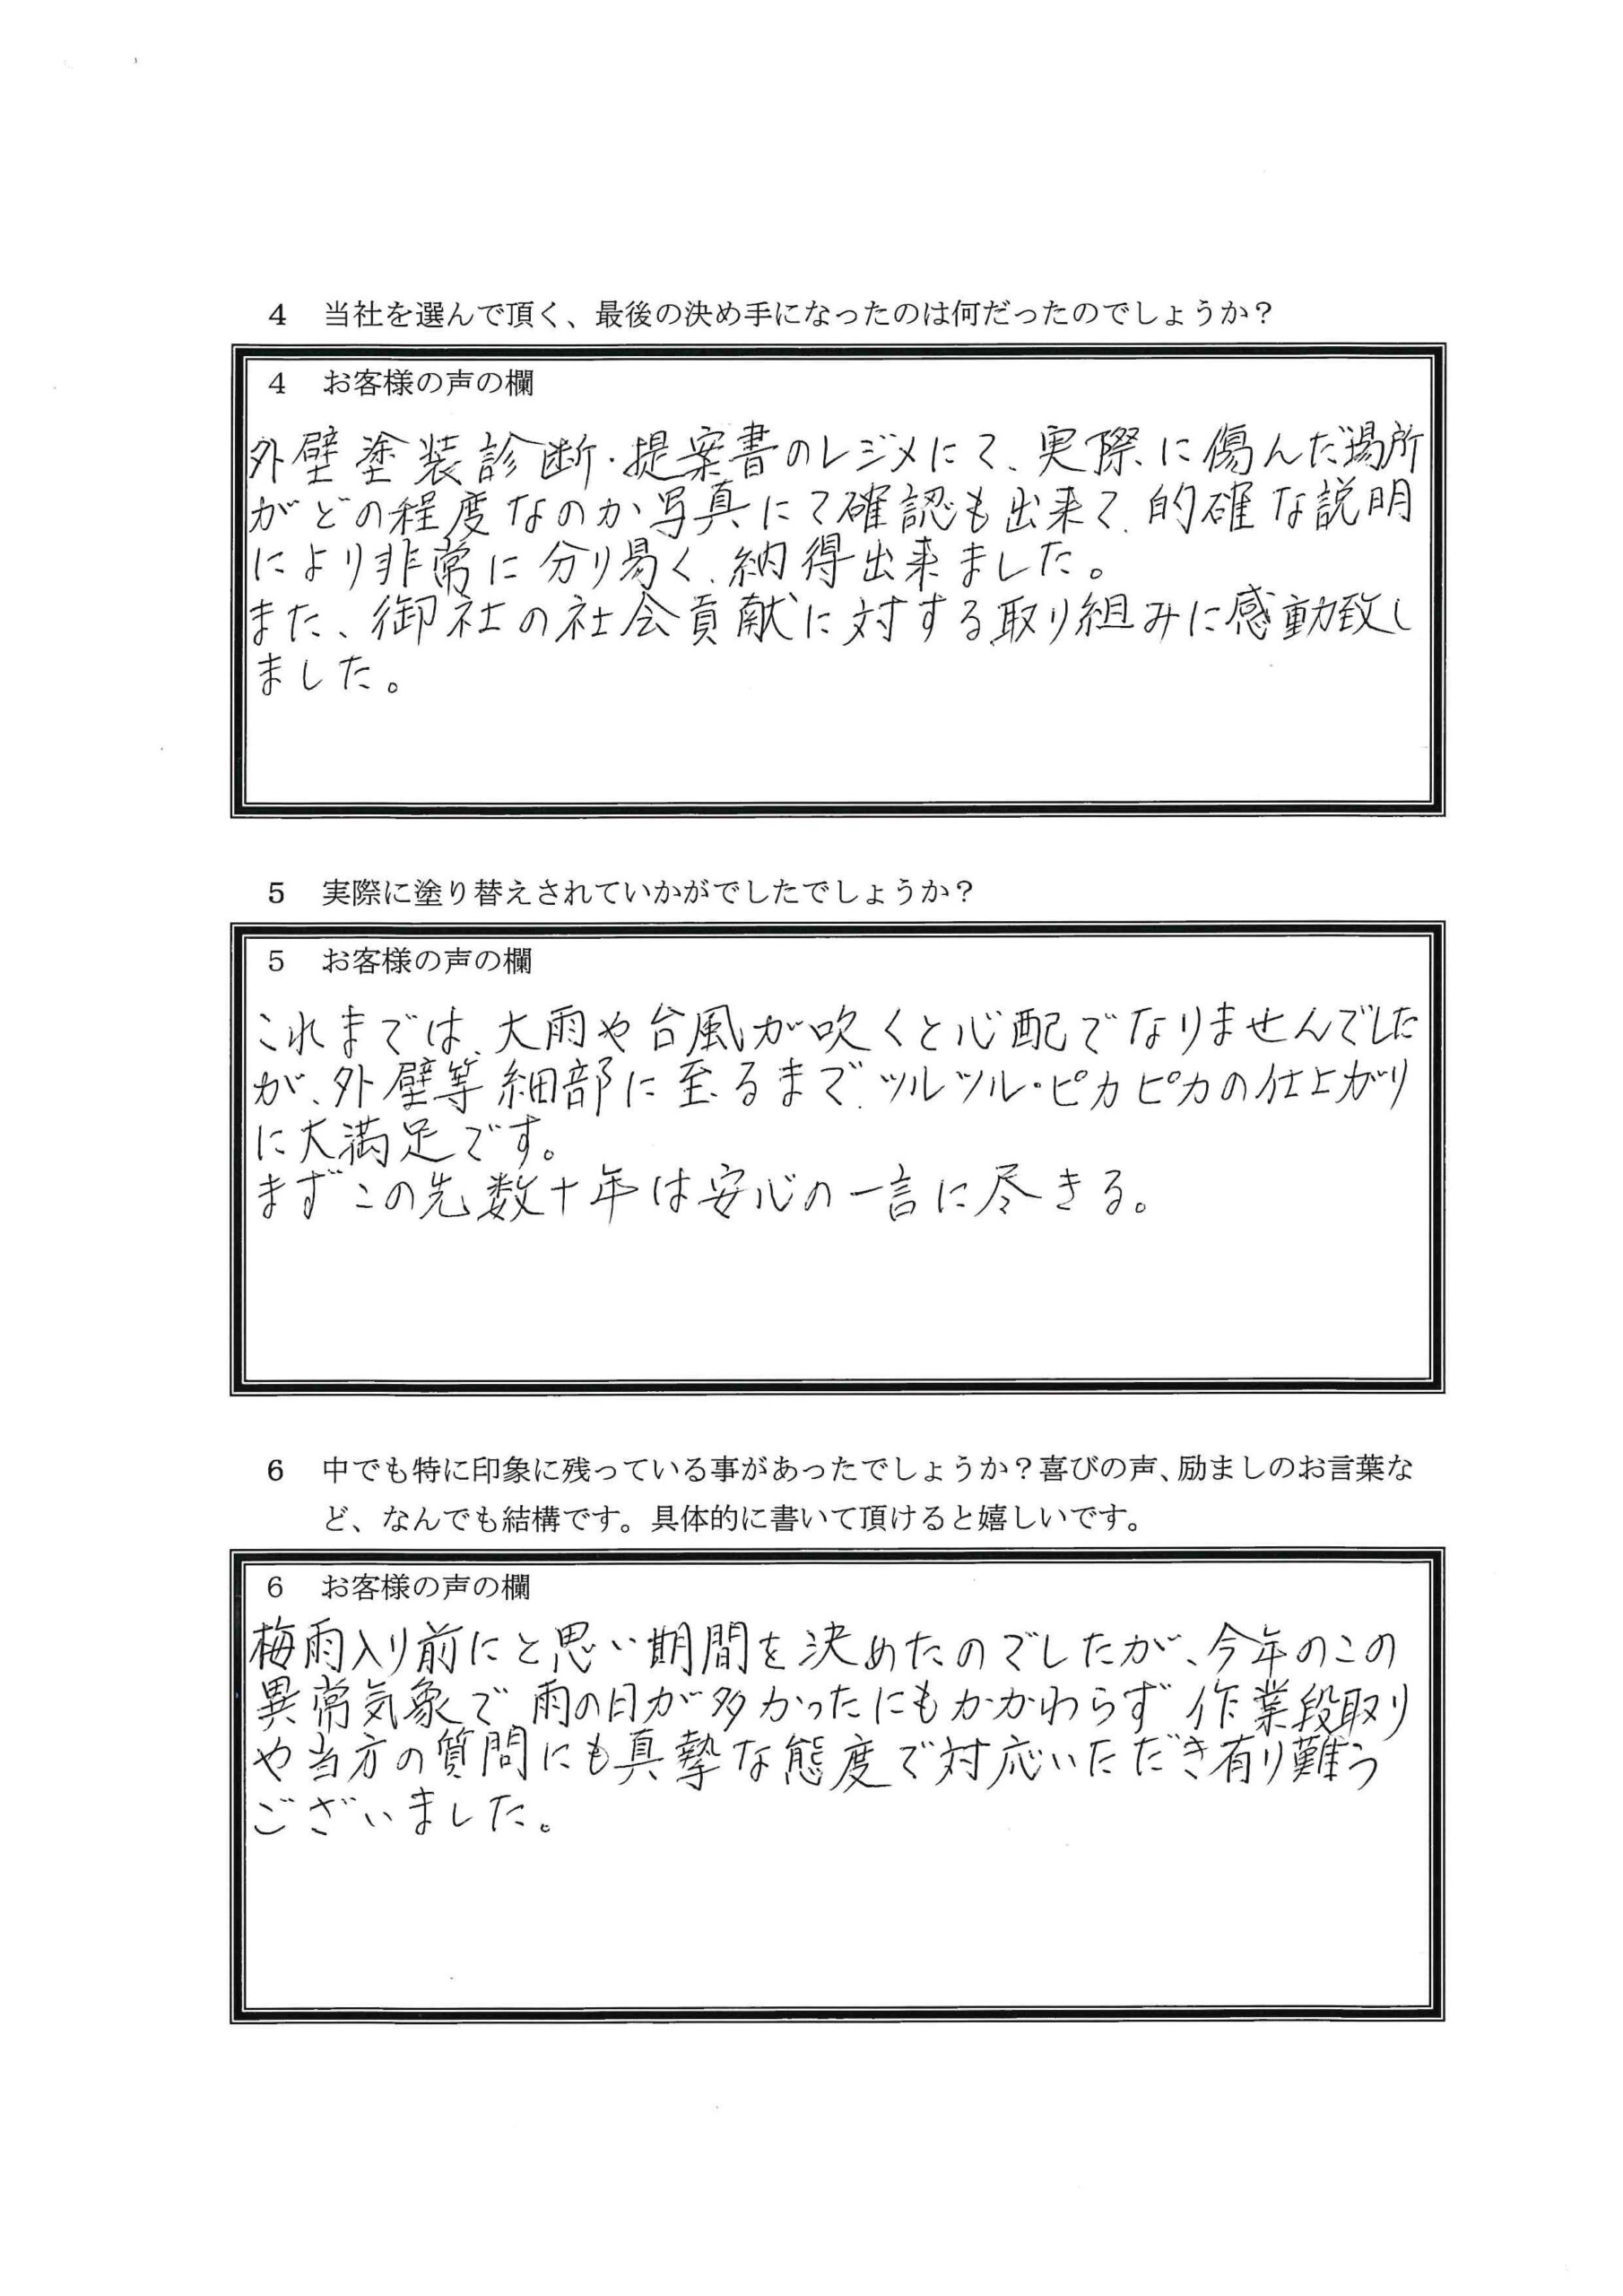 4 当社を選んで頂く、最後の決め手になったのは何だったのでしょうか？
4 お客様の声の欄
外壁塗装診断・提案書のレジメにて、実際に傷んだ場所
がどの程度なのか写真にて確認も出来て、的確な説明
により非常に分り易く、納得出来ました。
また、御社の社会貢献に対する取り組みに感動致し
ました。
5 実際に塗り替えされていかがでしたでしょうか？
5 お客様の声の欄
これまでは、大雨や台風が吹くと心配でなりませんでした
が、外壁等細部に至るまで、ツルツル・ピカピカの仕上がり
に大満足です。
まずこの先数十年は安心の一言に尽きる。
6 中でも特に印象に残っている事があったでしょうか？喜びの声、励ましのお言葉な
ど、なんでも結構です。具体的に書いて頂けると嬉しいです。
6 お客様の声の欄
梅雨入り前にと思い期間を決めたのでしたが、今年のこの
異常気象で雨の日が多かったにもかかわらず作業段取り
や当方の質問にも真摯な態度で対応いただき有り難う
ございました。